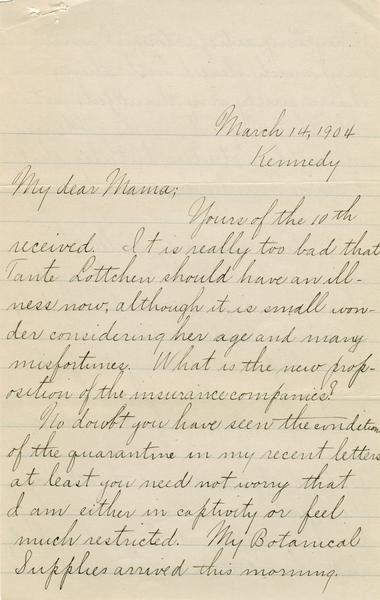 March 14, 1904
Kennedy
My dear Mama;
Yours of the 10th
received. It is really too bad that
Tante Lottchen should have an ill-
ness now, although it is small won-
der considering her age and many
misfortunes. What is the new prop-
osition of the insurance companies?
No doubt you have seen the condition
of the quarantine in my recent letters
at least you need not worry that
I am either in captivity or feel
much restricted. My Botanical
Supplies arrived this morning.